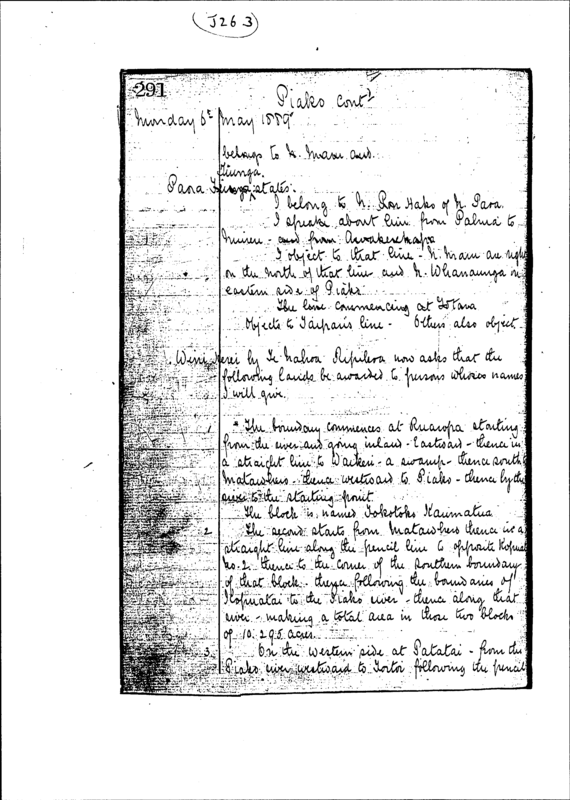 J26 3
291
Piako contd
Monday 6th May 1889
belongs to N. Maru and
Tiunga.
Para states.
I belong to N. Hako of N. Para.
I speak about line from to
and from
I object to that line - N. Maru are right
on the north of that line and N. Whanaunga on
eastern side of Piako
The line commencing at
Objects to line - Others also object -
by now asks that the
following lands be awarded to persons whose names
I will give.
1 The boundary commences at Ruaropa starting
from the river and going inland - Eastward - thence in
a straight line to - a swamp - thence south
- thence westward to Piako - thence by the
river to the starting point
The block is named Tokotoko Kaumatua
2 The second starts from thence in a
straight line along the pencil line to opposite
No. 2 thence to the corner of the southern boundary
of that block - thence following the boundaries of
Kopuatai to the Piako river - thence along that
river - making a total area in those two blocks
of 10.295 acres.
3. On the western side at Patatai - from the
Piako river westward to following the pencil